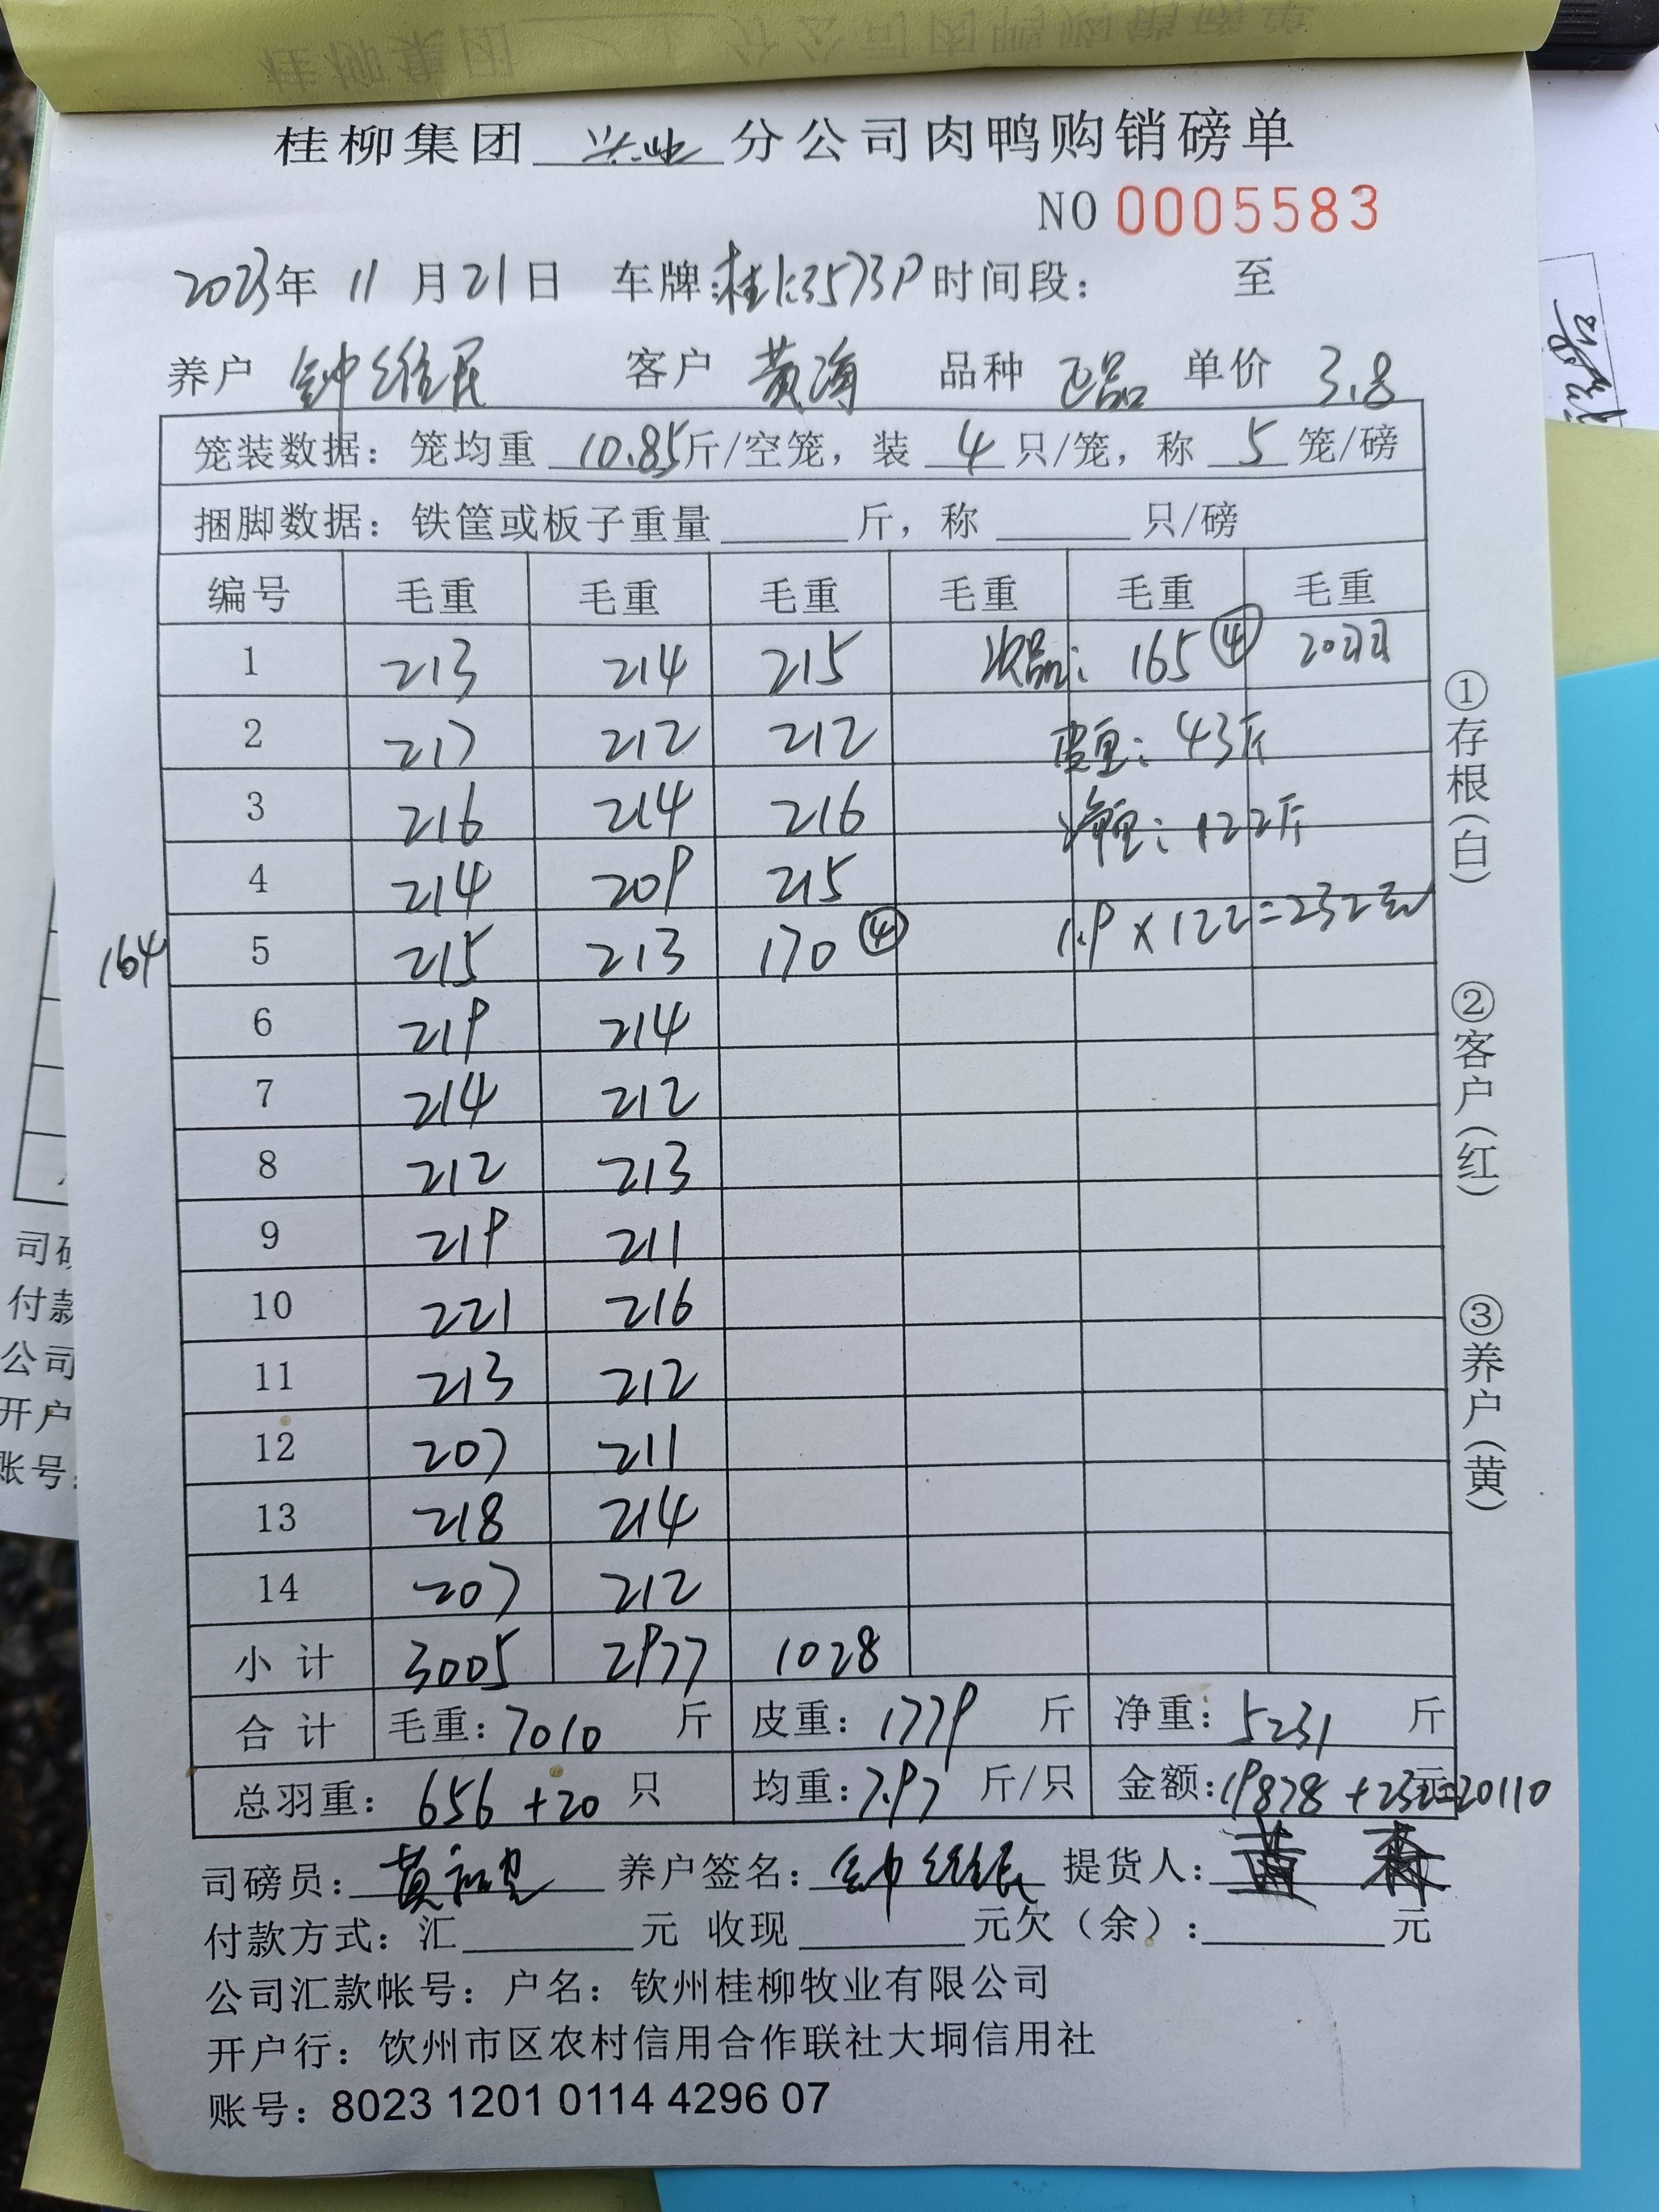 桂柳集团 兴业 分公司肉鸭购销磅单
NO 0005583
2023年 11 月 21 日 车牌:桂K3573P 时间段: 至
养户 钟维民 客户 黄海 品种 正品 单价 3.8
笼装数据: 笼均重 10.85 斤/空笼, 装 4 只/笼, 称 5 笼/磅
捆脚数据: 铁筐或板子重量 斤, 称 只/磅
编号 毛重 毛重 毛重 毛重 毛重 毛重
1 213 214 215 次品: 165 ④ 20羽
2 217 212 212 皮重: 43斤
3 216 214 216 净重: 122斤
4 214 209 215
164 5 215 213 170 ④ 1.9 × 122=232元
6 219 214
7 214 212
8 212 213
9 219 211
10 221 216
11 213 212
12 207 211
13 218 214
14 207 212
小 计 3005 2977 1028
合 计 毛重: 7010 斤 皮重: 1779 斤 净重: 5231 斤
总羽重: 656 +20 只 均重: 7.97 斤/只 金额: 19878 +232元=20110
司磅员: 黄 养户签名: 钟维民 提货人: 黄
付款方式: 汇 元 收现 元欠(余): 元
公司汇款帐号: 户名: 钦州桂柳牧业有限公司
开户行: 饮州市区农村信用合作联社大垌信用社
账号: 8023 1201 0114 4296 07
①存根(白)
②客户(红)
③养户(黄)
司磅
付款
公司
开户
账号: